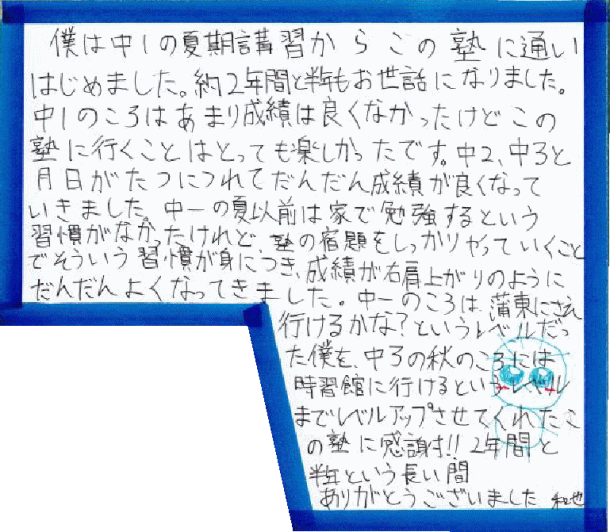 僕は中1の夏期講習からこの塾に通い
はじめました。約2年間と半年もお世話になりました。
中1のころはあまり成績は良くなかったけどこの
塾に行くことはとっても楽しかったです。中2、中3と
月日がたつにつれてだんだん成績が良くなって
いきました。中一の夏以前は家で勉強するという
習慣がなかったけれど、塾の宿題をしっかりやっていくこと
でそういう習慣が身につき、成績が右肩上がりのように
だんだんよくなってきました。中一のころは、蒲東にさえ
行けるかな?というレベルだっ
た僕を、中3の秋のころには
時習館に行けるというレベル
までレベルアップさせてくれたこ
の塾に感謝!! 2年間と
半年という長い間
ありがとうございました 和也